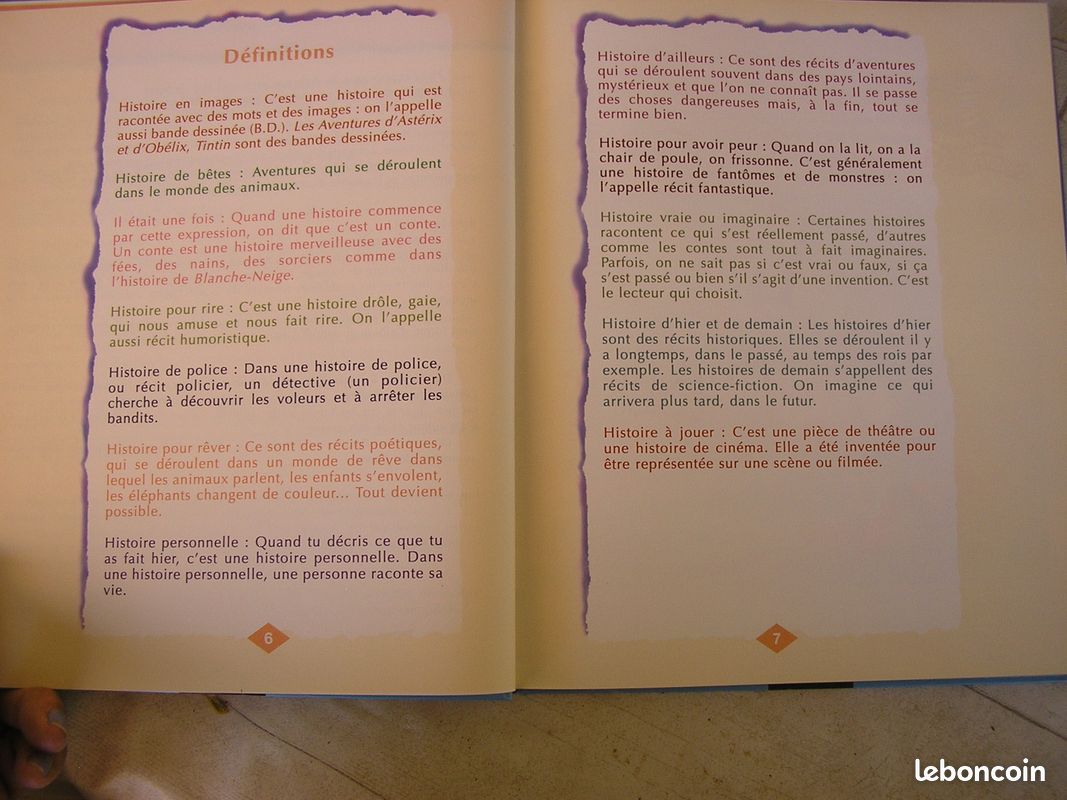 Définitions
Histoire en images : C'est une histoire qui est
racontée avec des mots et des images : on l'appelle
aussi bande dessinée (B.D.). Les Aventures d'Astérix
et d'Obélix, Tintin sont des bandes dessinées.
Histoire de bêtes : Aventures qui se déroulent
dans le monde des animaux.
Il était une fois : Quand une histoire commence
par cette expression, on dit que c'est un conte.
Un conte est une histoire merveilleuse avec des
fées, des nains, des sorciers comme dans
l'histoire de Blanche-Neige.
Histoire pour rire : C'est une histoire drôle, gaie,
qui nous amuse et nous fait rire. On l'appelle
aussi récit humoristique.
Histoire de police : Dans une histoire de police,
ou récit policier, un détective (un policier)
cherche à découvrir les voleurs et à arrêter les
bandits.
Histoire pour rêver : Ce sont des récits poétiques,
qui se déroulent dans un monde de rêve dans
lequel les animaux parlent, les enfants s'envolent,
les éléphants changent de couleur... Tout devient
possible.
Histoire personnelle : Quand tu décris ce que tu
as fait hier, c'est une histoire personnelle. Dans
une histoire personnelle, une personne raconte sa
vie.
6
Histoire d'ailleurs : Ce sont des récits d'aventures
qui se déroulent souvent dans des pays lointains,
mystérieux et que l'on ne connaît pas. Il se passe
des choses dangereuses mais, à la fin, tout se
termine bien.
Histoire pour avoir peur : Quand on la lit, on a la
chair de poule, on frissonne. C'est généralement
une histoire de fantômes et de monstres : on
l'appelle récit fantastique.
Histoire vraie ou imaginaire : Certaines histoires
racontent ce qui s'est réellement passé, d'autres
comme les contes sont tout à fait imaginaires.
Parfois, on ne sait pas si c'est vrai ou faux, si ça
s'est passé ou bien s'il s'agit d'une invention. C'est
le lecteur qui choisit.
Histoire d'hier et de demain : Les histoires d'hier
sont des récits historiques. Elles se déroulent il y
a longtemps, dans le passé, au temps des rois par
exemple. Les histoires de demain s'appellent des
récits de science-fiction. On imagine ce qui
arrivera plus tard, dans le futur.
Histoire à jouer : C'est une pièce de théâtre ou
une histoire de cinéma. Elle a été inventée pour
être représentée sur une scène ou filmée.
7
leboncoin